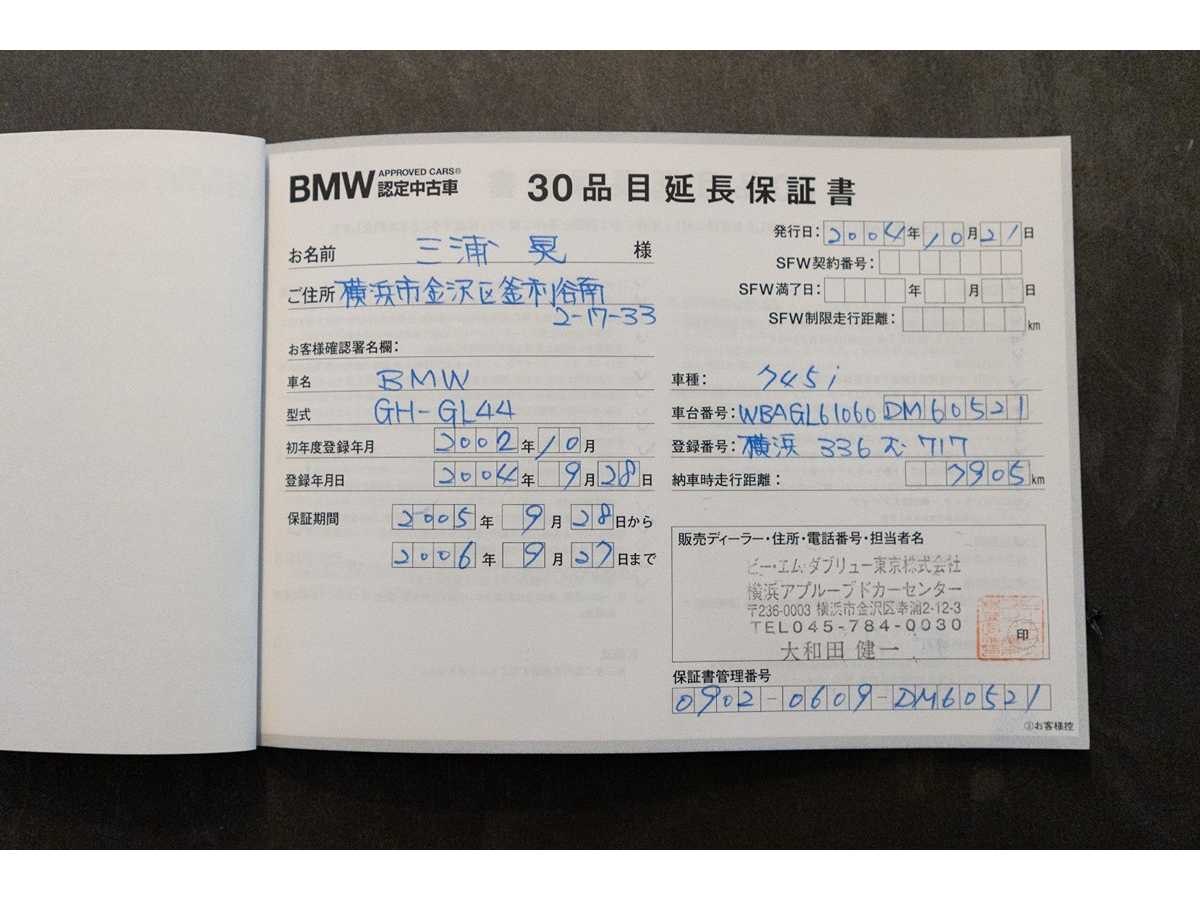 BMW APPROVED CARS® 認定中古車 30品目延長保証書
発行日: 2004年10月21日
お名前 三浦 晃 様
SFW契約番号:
ご住所 横浜市金沢区釜利谷南
2-17-33
SFW満了日: 年 月 日
SFW制限走行距離: km
お客様確認署名欄:
車名 BMW
車種: 745i
型式 GH-GL44
車台番号: WBAGL61060DM60521
初年度登録年月 2002年10月
登録番号: 横浜 336 む 717
登録年月日 2004年9月28日
納車時走行距離: 7905km
保証期間 2005年9月28日から
2006年9月27日まで
販売ディーラー・住所・電話番号・担当者名
ビー・エム・ダブリュー東京株式会社
横浜アプルーブドカーセンター
〒236-0003 横浜市金沢区幸浦2-12-3
TEL045-784-0030
大和田 健一
印
保証書管理番号
0902-0609-DM60521
③お客様控